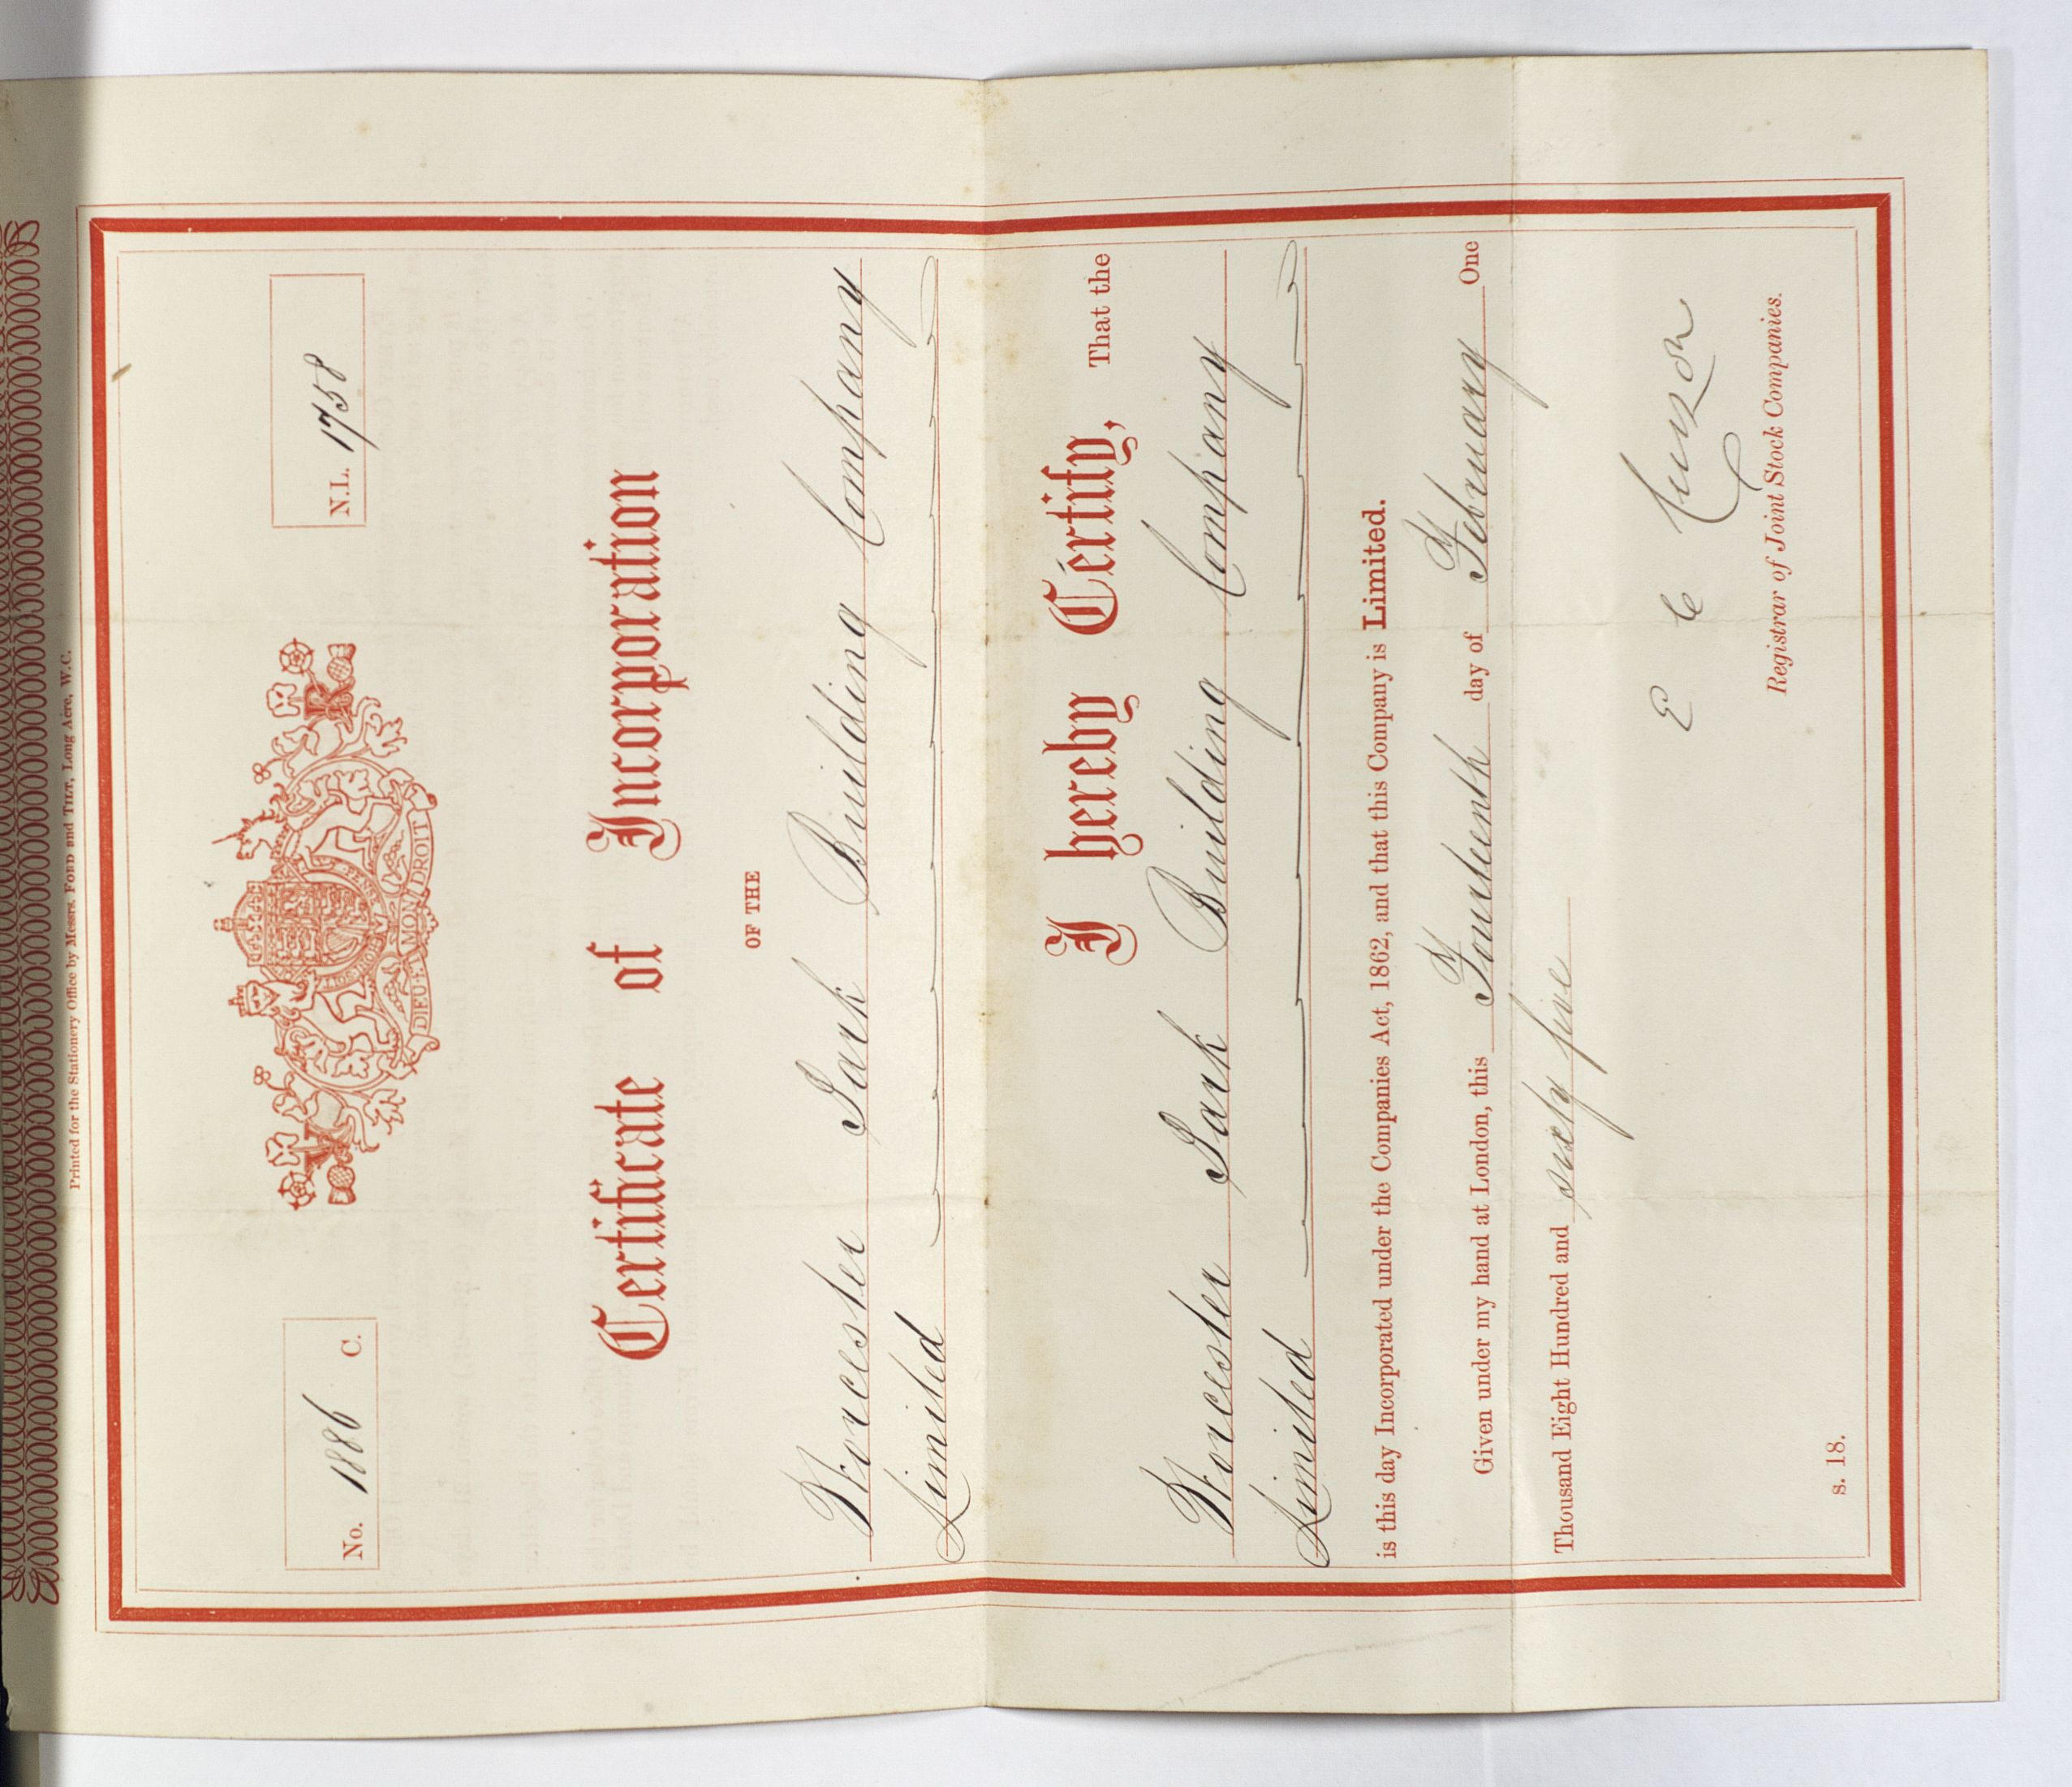 Printed for the Stationery Office by Messrs. FORD and TILT, Long Acre, W.C.
No. 1886 C.
N.L. 1758
HONI SOIT
PENSE
DIEU·ET MON DROIT
Certificate of Incorporation
OF THE
Worcester Park Building Company
Limited
I hereby Certify, That the
Worcester Park Building Company
Limited
is this day Incorporated under the Companies Act, 1862, and that this Company is Limited.
Given under my hand at London, this Fourteenth day of February One
Thousand Eight Hundred and sixty five
E C Curzon
Registrar of Joint Stock Companies.
s. 18.